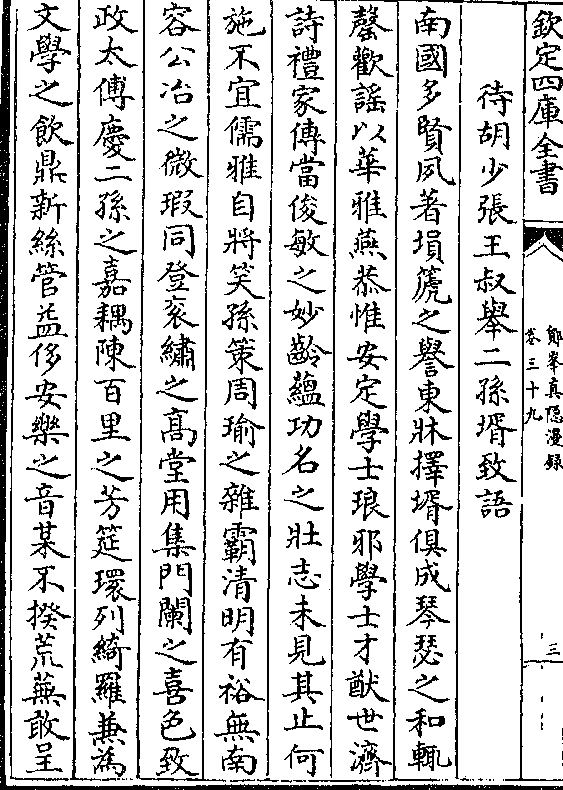 欽定四庫全書
鄮峯真隱漫録
卷三十九
三
待胡少張王叔舉二孫壻致語
南國多賢夙著塤篪之譽東牀擇壻俱成琴瑟之和輒
罄歡謡以華雅燕恭惟安定學士琅邪學士才猷世濟
詩禮家傳當俊敏之妙齡藴功名之壯志未見其止何
施不宜儒雅自將笑孫策周瑜之雜霸清明有裕無南
容公冶之微瑕同登衮繡之髙堂用集門闌之喜色致
政太傅慶二孫之嘉耦陳百里之芳筵環列綺羅兼為
文學之飲鼎新絲管益侈安樂之音某不揆荒蕪敢呈